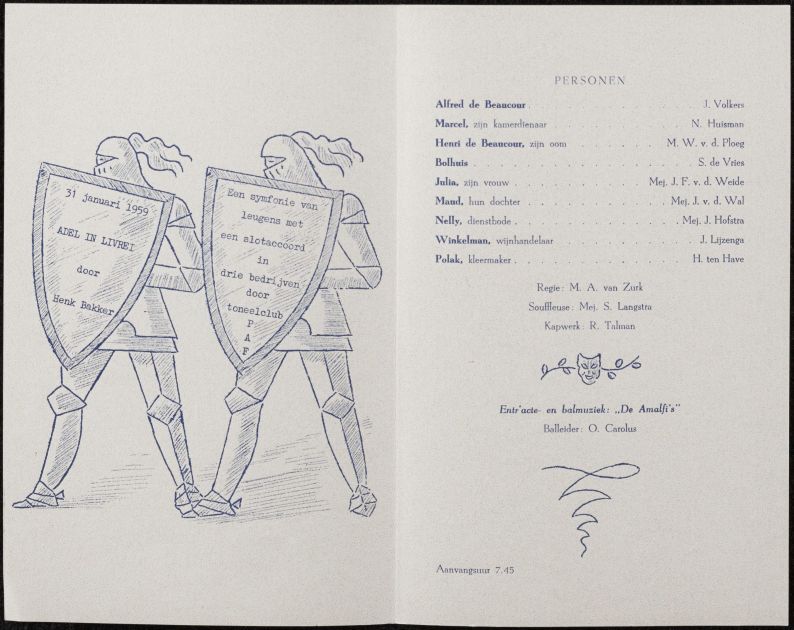 31 januari 1959
ADEL IN LIVREI
door
Henk Bakker
Een symfonie van
leugens met
een slotaccoord
in
drie bedrijven
door
toneelclub
P
A
F
PERSONEN
Alfred de Beaucour . . . . . . . . . . J. Volkers
Marcel, zijn kamerdienaar . . . . . . . . N. Huisman
Henri de Beaucour, zijn oom . . . . . . M. W. v. d. Ploeg
Bolhuis . . . . . . . . . . . . . S. de Vries
Julia, zijn vrouw . . . . . . . . Mej. J. F. v. d. Weide
Maud, hun dochter . . . . . . . . Mej. J. v. d. Wal
Nelly, dienstbode . . . . . . . . . . Mej. J. Hofstra
Winkelman, wijnhandelaar . . . . . . . . J. Lijzenga
Polak, kleermaker . . . . . . . . . . H. ten Have
Regie: M. A. van Zurk
Souffleuse: Mej. S. Langstra
Kapwerk: R. Talman
Entr'acte- en balmuziek: „De Amalfi's"
Balleider: O. Carolus
Aanvangsuur 7.45